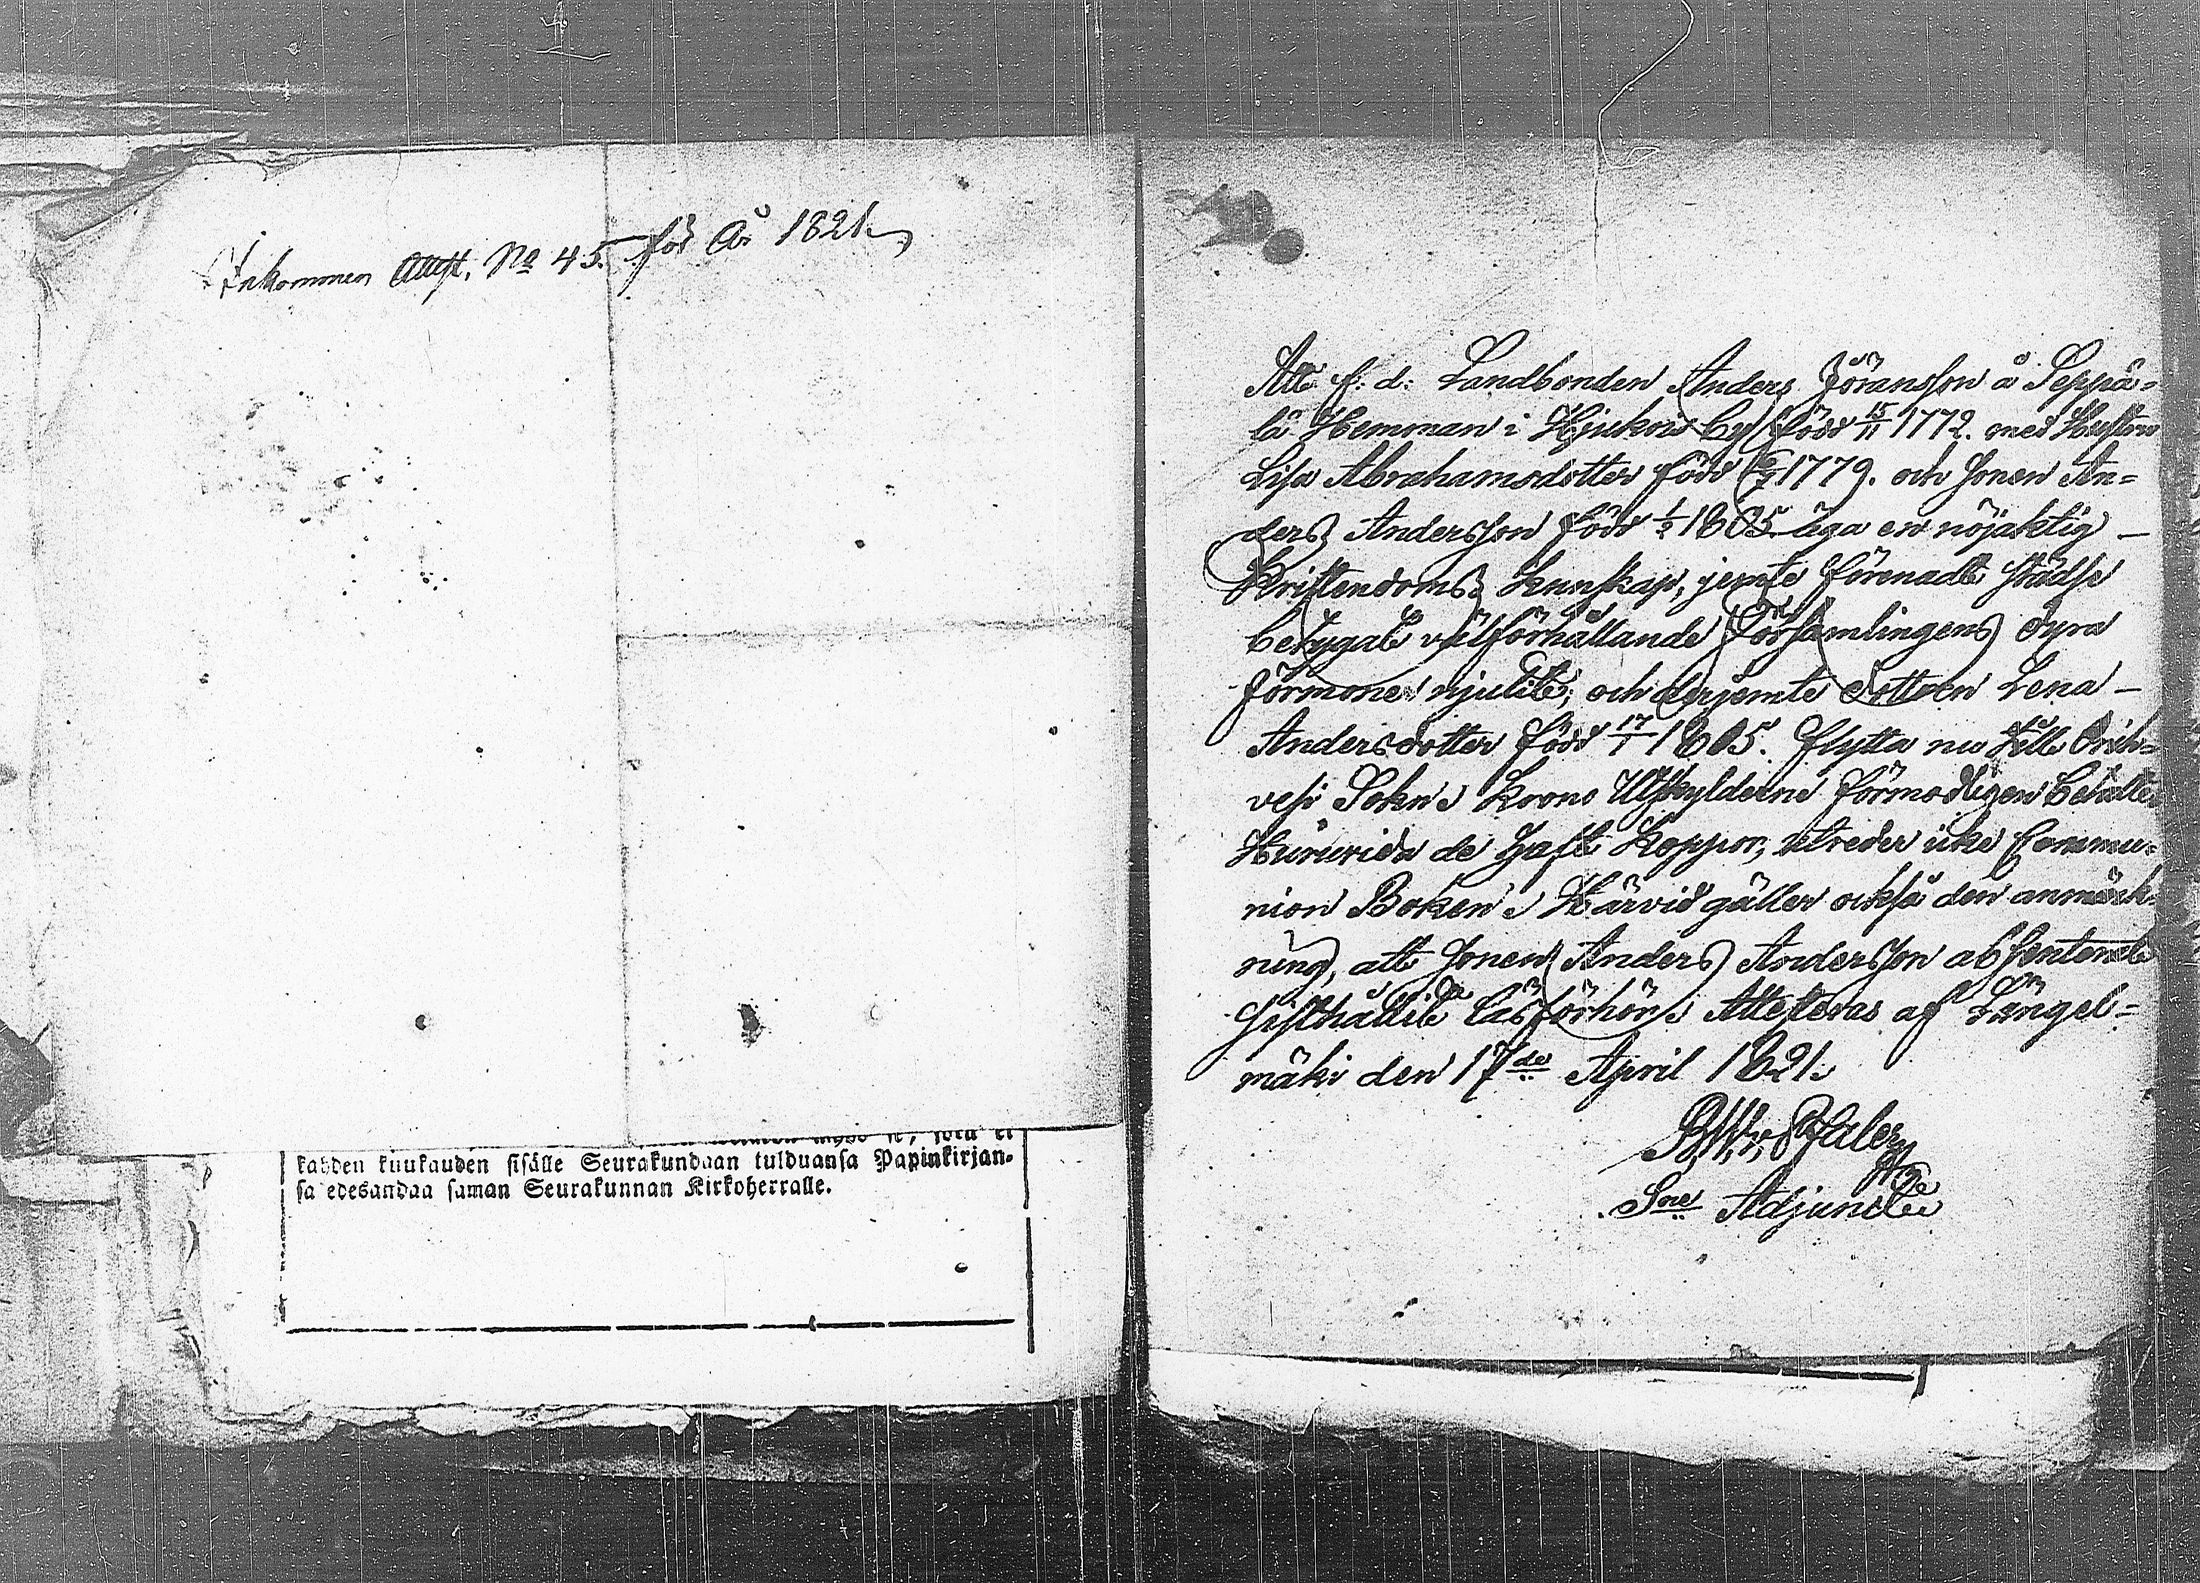 Inkommen Attest. No 45. för År 1821.
kahden kuukauden sisälle Seurakundaan tulduansa Papinkirjan-
sa edesandaa saman Seurakunnan Kirkoherralle.
Att f: d: Landbonden Anders Jöransson å Seppä-
lä Hemman i Hjukois by född 15/11 1772. med Hustrun
Lisa Abrahamsdotter född 1779. och Sonen An-
ders Andersson född 1/2 1805 äga en nöjaktig
Kristendoms Kunskap, jemte förenadt städse
betygat välförhållande Församlingens dyra
förmoner njutit; och derjemte dottren Lena
Andersdotter född 17/1 1805. flytta nu till Orih-
vesi Sokn. Krono Utskylderne förmodligen betalte.
Huruvida de haft Koppor, utreder icke Commu-
nion Boken. Härvid gäller också den anmärk-
ning, att Sonen Anders Andersson absenterat
sisthållit Läsförhör. Attesteras af Längel-
mäki den 17de April 1821.
Sne Adjunct